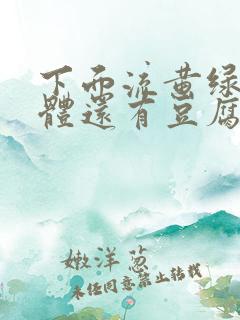 下面流黄绿
體還有豆腐
嫩洋葱
未经同意禁止转载